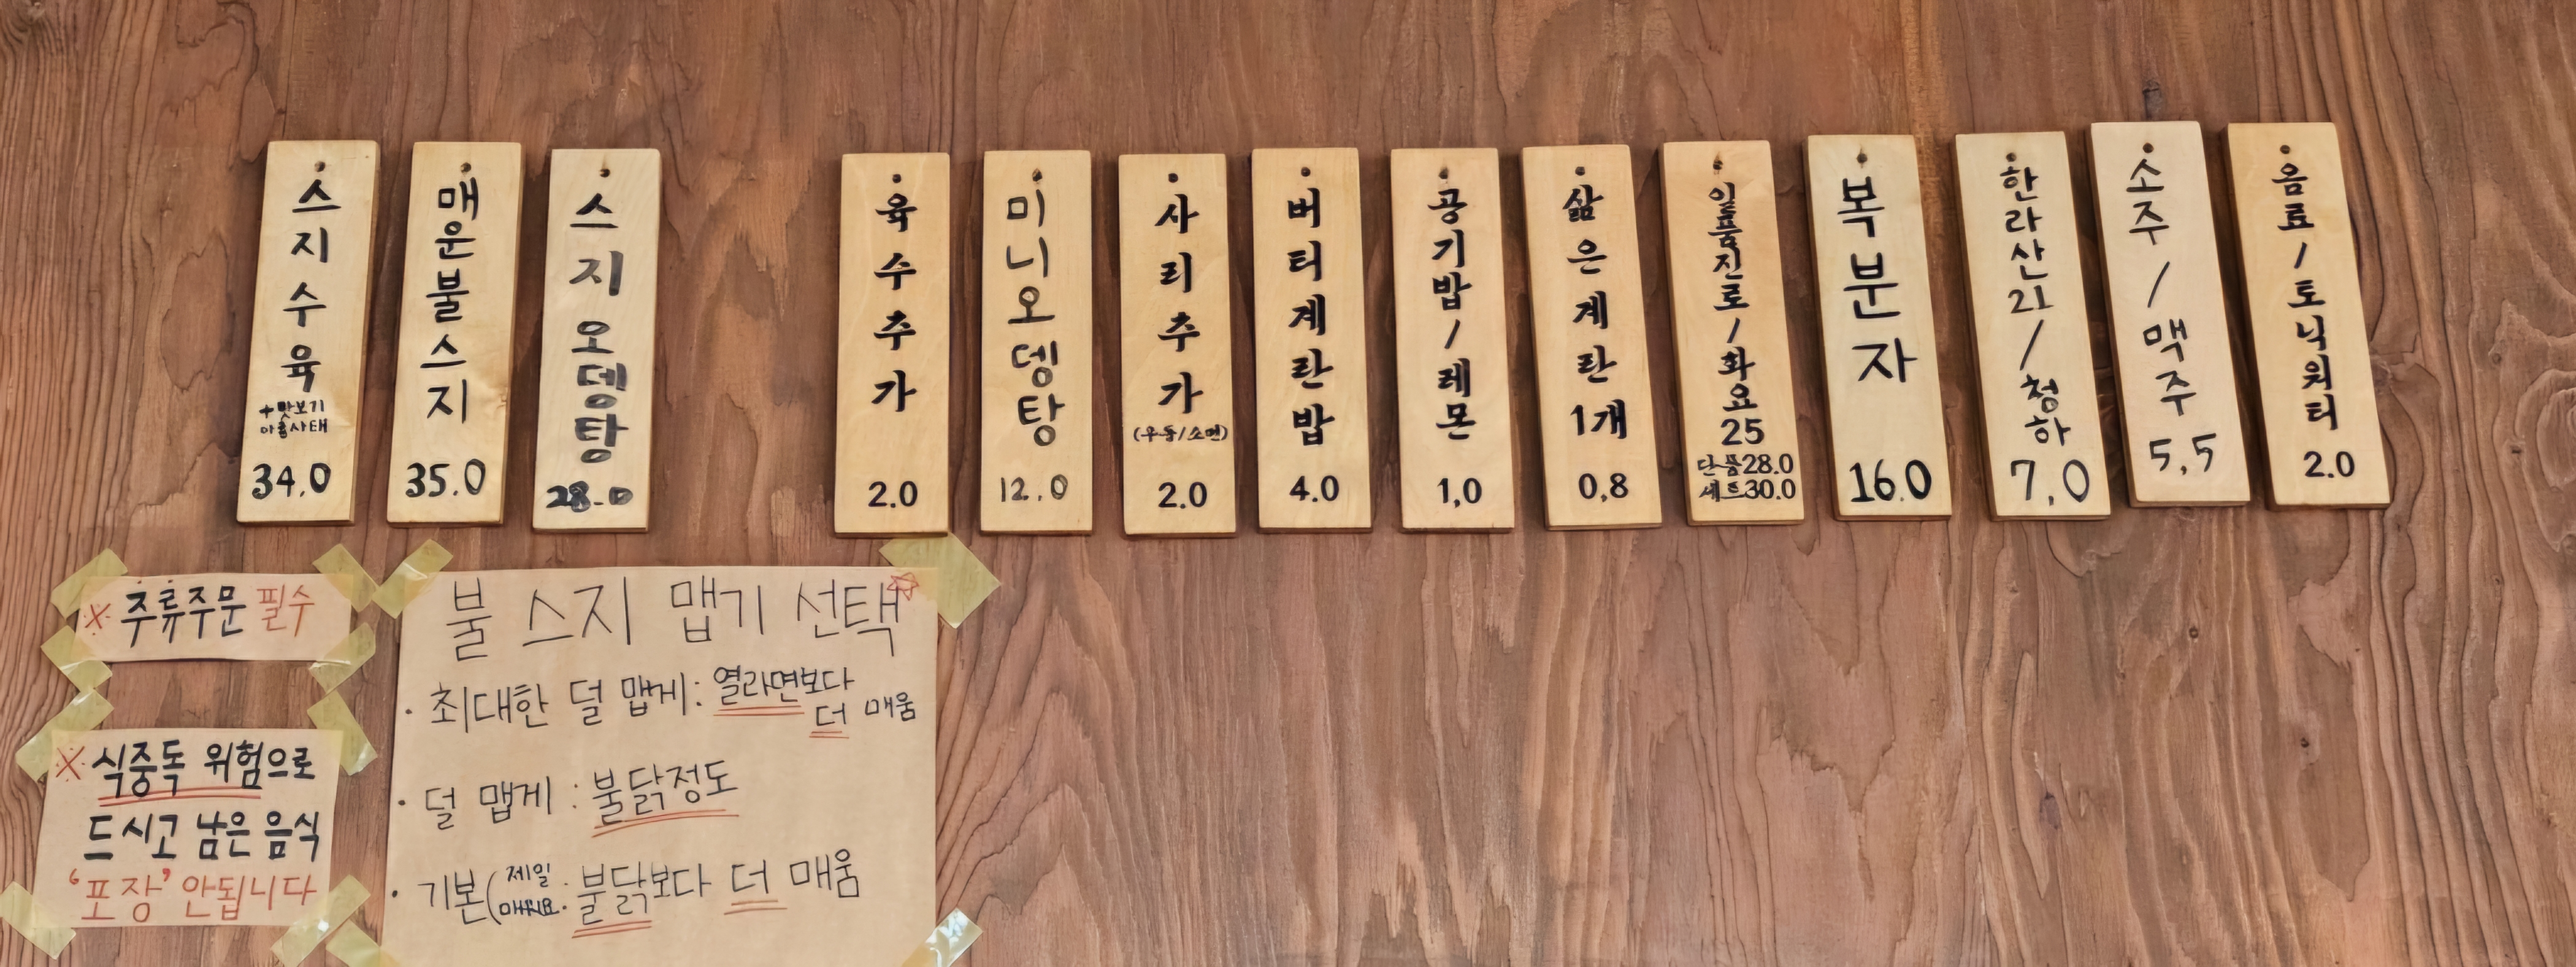 스지수육
+맛보기
아롱사태
34.0
매운불스지
35.0
스지오뎅탕
28.0
육수추가
2.0
미니오뎅탕
12.0
사리추가
(우동/소면)
2.0
버터계란밥
4.0
공기밥/레몬
1,0
삶은계란1개
0,8
일품진로/화요25
단품28.0
세트30.0
복분자
16.0
한라산21/청하
7,0
소주/맥주
5,5
음료/토닉워터
2.0
※주류주문 필수
※식중독 위험으로
드시고 남은 음식
'포장' 안됩니다
불 스지 맵기 선택
· 최대한 덜 맵게: 열라면보다
더 매움
· 덜 맵게 : 불닭정도
· 기본(제일
매워요: 불닭보다 더 매움